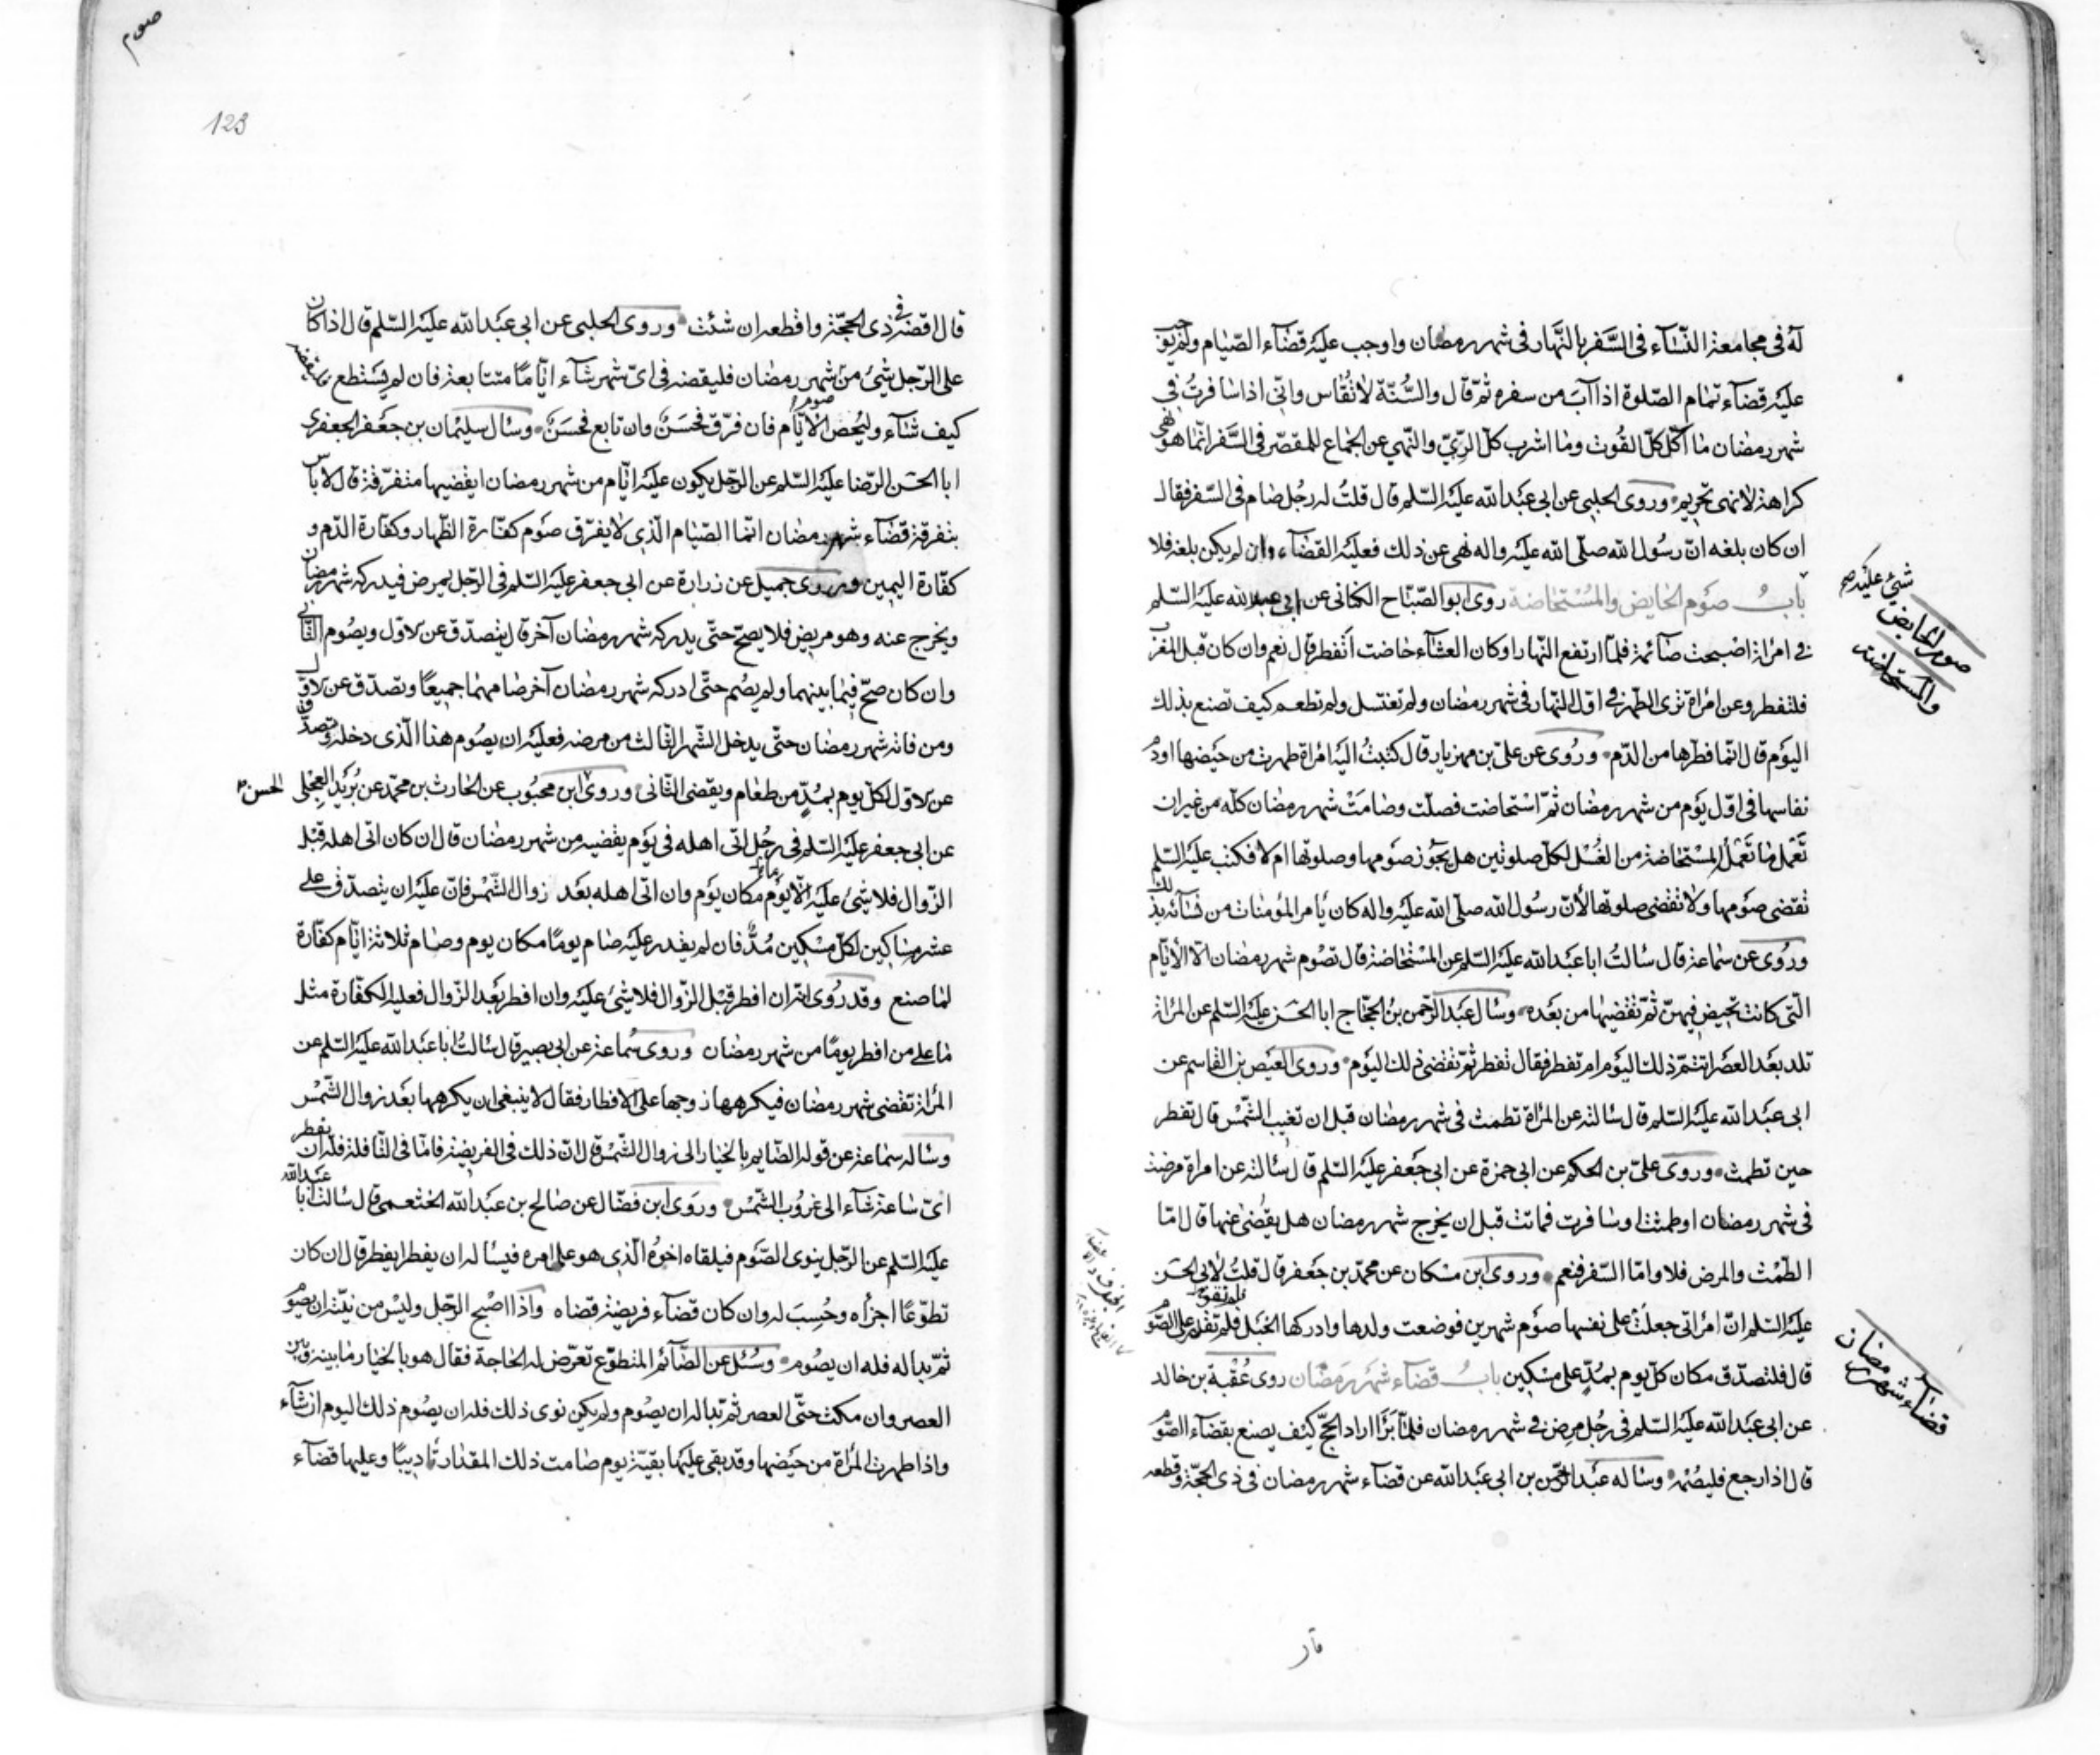 له فى مجامعة النسآء فى السَّفر بالنّهار فى شهر رمضان واوجب عليه قضآء الصّيام ولم يوجب
عليه قضآء تمام الصّلوة اذا آبَ من سفره ثمّ قال والسُّنّة لا تُقاس وانّى اذا سافرتُ فى
شهر رمضان ما آكل كلّ القُوت وما اشرب كلّ الرِّىّ والنّهى عن الجماع للمقصّر فى السَّفر انّما هو نهى
كراهة لا نهى تحريم وروى الحلبى عن ابى عبد الله عليه السّلم قال قلتُ له رجُل صام فى السّفر فقال
ان كان بلغه انّ رسُول الله صلّى الله عليه واله نهى عن ذلك فعليه القضآء وان لم يكن بلغه فلا
شىء عليه صح
بابُ صوم الحايض والمُسْتحاضة روى ابو الصّبّاح الكنانى عن ابى عبد الله عليه السّلم
صوم الحايض
والمستحاضة
فى امراة اصبحت صآئمة فلمّا ارتفع النّهار او كان العشآء حاضت أتفطر قال نعم وان كان قبل المغرب
فلتفطر وعن امراة ترى الطّهر فى اوّل النّهار فى شهر رمضان ولم تغتسل ولم تطعم كيف تصنع بذلك
اليوم قال انّما فطرها من الدّم وروى عن علىّ بن مهزيار قال كتبتُ اليه امراة طهرت من حَيضها او دم
نفاسها فى اوّل يوم من شهر رمضان ثمّ استحاضت فصلّت وصامَتْ شهر رمضان كلّه من غير ان
تَعْمل ما تَعْمَلُ المسْتحاضة من الغُسْل لكلّ صلوتين هل يجوز صومها وصلوتها ام لا فكتب عليه السّلم
تقضى صَومها ولا تقضى صلوتها لأنّ رسُول الله صلّى الله عليه واله كان يأمر المؤمنات من نسآئه بذلك
وروى عن سماعة قال سألتُ ابا عبد الله عليه السّلم عن المسْتحاضة قال تصُوم شهر رمضان الّا الأيّام
الّتى كانت تحيض فيهنّ ثمّ تقضيها من بعده وسأل عبد الرّحمن بن الحجّاج ابا الحسَن عليه السّلم عن المراة
تلد بعد العصر اتتمّ ذلك اليوم ام تفطر فقال تفطر ثمّ تقضى ذلك اليوم وروى العيص بن القاسم عن
ابى عبد الله عليه السّلم قال سألته عن المراة تطمث فى شهر رمضان قبل ان تغيب الشّمْس قال تفطر
حين تطمث وروى علىّ بن الحكم عن ابى حمزة عن ابى جعفر عليه السّلم قال سألته عن امراة مرضت
فى شهر رمضان او طمثت او سافرت فماتت قبل ان يخرج شهر رمضان هل يقضى عنها قال امّا
الطّمْث والمرض فلا وامّا السّفر فنعم وروى ابن مسْكان عن محمّد بن جعفر قال قلتُ لابى الحسَن
عليه السّلم انّ امراتى جعلَتْ على نفسها صَوم شهرين فوضعت ولدها وادركها الحَبَل فلم تقدر على الصّوم
فلم تقو
قال فلتصدّق مكان كلّ يوم بمُدّ على مسْكين بابُ قضآء شهر رمضان روى عُقْبة بن خالد
قضآء شهر رمضان
عن ابى عبد الله عليه السّلم فى رجُل مرض فى شهر رمضان فلمّا بَرَأَ اراد الحجّ كيف يصنع بقضآء الصّوم
قال اذا رجع فليصُمْه وسأله عبد الرّحمن بن ابى عبد الله عن قضآء شهر رمضان فى ذى الحجّة وقطعه
قال
صوم
123
قال اقضه فى ذى الحجّة واقطعه ان شئت وروى الحلبى عن ابى عبد الله عليه السّلم قال اذا كان
على الرّجل شىء من شهر رمضان فليقضه فى اىّ شهر شآء ايّامًا متتابعة فان لم يَسْتطع فليقضه
كيف شآء وليُحص الأيّام فان فرّق فحَسَنٌ وان تابع فحسَنٌ وسأل سليمان بن جعفر الجعفرى
ابا الحسَن الرّضا عليه السّلم عن الرّجل يكون عليه ايّام من شهر رمضان ايقضيها متفرّقة قال لا باس
بتفرقة قضآء شهر رمضان انّما الصّيام الّذى لا يفرّق صَوم كفّارة الظّهار وكفّارة الدّم و
كفّارة اليمين وروى جميل عن زرارة عن ابى جعفر عليه السّلم فى الرّجل يمرض فيدركه شهر رمضان
ويخرج عنه وهو مريض فلا يصحّ حتّى يدركه شهر رمضان آخر قال يتصدّق عن الاوّل ويصُوم الثّانى
وان كان صحّ فيما بينهما ولم يصُم حتّى ادركه شهر رمضان آخر صامهما جميعًا وتصدّق عن الاوّل
ومن فاته شهر رمضان حتّى يدخل الشّهر الثّالث من مرضه فعليه ان يصُوم هذا الّذى دخله وتصدّق
عن الاوّل لكلّ يوم بمُدّ من طعام ويقضى الثّانى وروى ابن محبُوب عن الحارث بن محمّد عن بُرَيد العِجْلى
الحسن
عن ابى جعفر عليه السّلم فى رجُل اتى اهله فى يَوم يقضيه من شهر رمضان قال ان كان اتى اهله قبْل
الزّوال فلا شىء عليه الّا يَوم مكان يَوم وان اتى اهله بعَد زوال الشّمْس فانّ عليه ان يتصدّق على
عشرة مساكين لكلّ مسْكين مُدٌّ فان لم يقدر عليه صام يومًا مكان يوم وصام ثلاثة ايّام كفّارة
لما صنع وقد روى انّه ان افطر قبْل الزّوال فلا شىء عليه وان افطر بَعد الزّوال فعليه الكفّارة مثل
ما على من افطر يومًا من شهر رمضان وروى سماعة عن ابى بصير قال سألتُ ابا عبد الله عليه السّلم عن
المراة تقضى شهر رمضان فيكرهها زوجها على الافطار فقال لا ينبغى ان يكرهها بعد زوال الشّمْس
وسأله سماعة عن قوله الصّايم بالخيار الى زوال الشّمْس قال انّ ذلك فى الفريضة فامّا فى النّافلة فله ان يفطر
اىّ ساعة شآء الى غروُب الشّمْس وروى ابن فضّال عن صالح بن عبد الله الخثعمى قال سألت ابا عبد الله
عليه السّلم عن الرّجل ينوى الصّوم فيلقاه اخوُه الّذى هو على امره فيسأله ان يفطر ايفطر قال ان كان
تطوّعًا اجزأه وحُسِبَ له وان كان قضآء فريضة قضاه واذا اصبح الرّجل وليْس من نيّته ان يصوم
ثمّ بدا له فله ان يصُوم وسُئل عن الصّآئم المتطوّع تعرّض له الحاجة فقال هو بالخيار ما بينه وبين
العصر وان مكث حتّى العصر ثمّ بدا له ان يصُوم ولم يكن نوى ذلك فله ان يصُوم ذلك اليوم ان شآء
واذا طهرت المراة من حَيضها وقد بقى عليها بقيّة يوم صامت ذلك المقدار تأديبًا وعليها قضآء